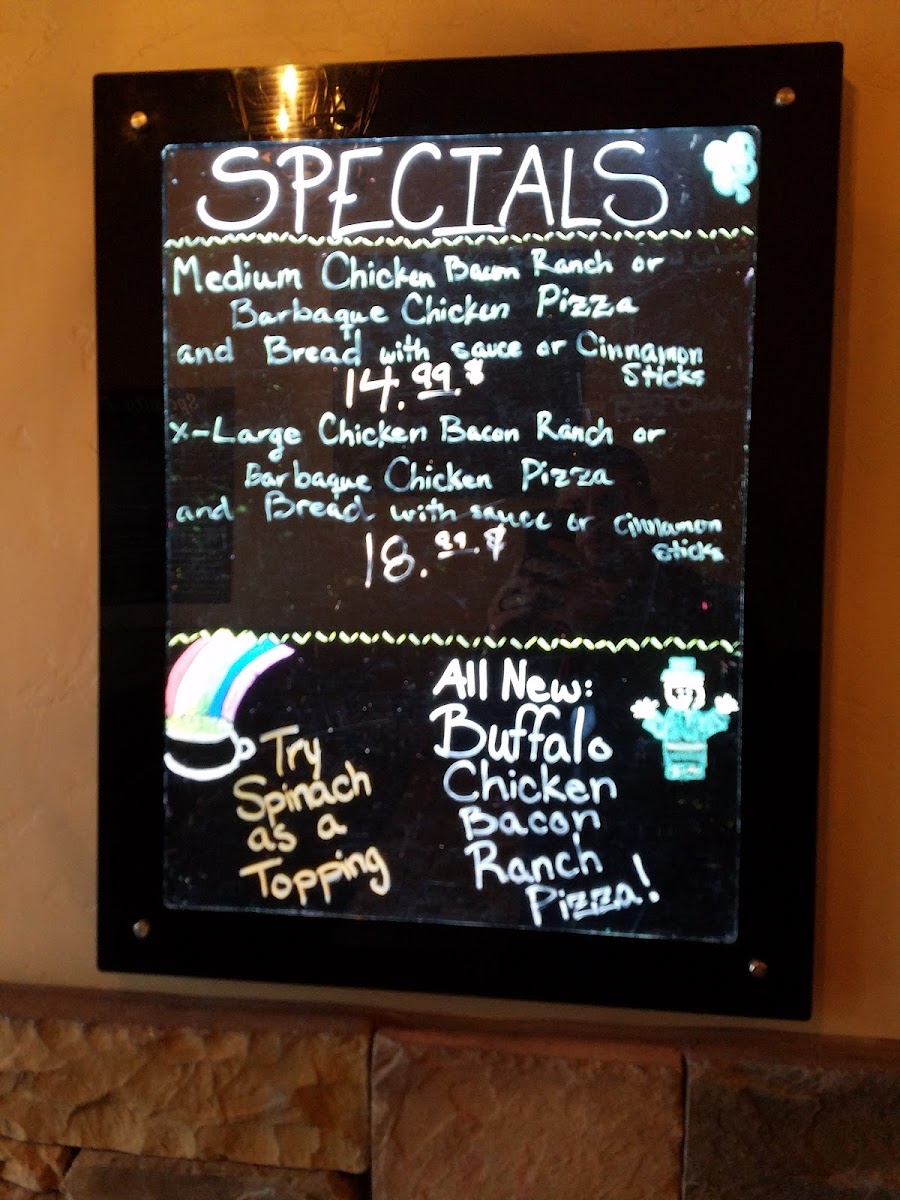 SPECIALS
Medium Chicken Bacon Ranch or
Barbaque Chicken Pizza
and Bread with sauce or Cinnamon
Sticks
14.99.$
X-Large Chicken Bacon Ranch or
Barbaque Chicken Pizza
and Bread with sauce or cinnamon
sticks
18.99.$
Try
Spinach
as a
Topping
All New:
Buffalo
Chicken
Bacon
Ranch
Pizza!